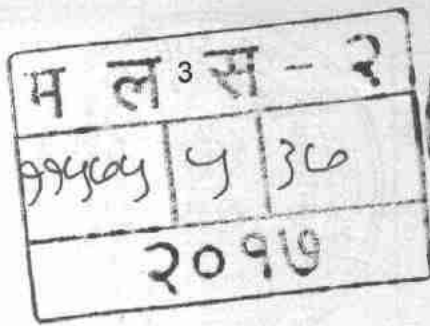 म ल 3 स - २
११५७५ ५ ३७
२०१७